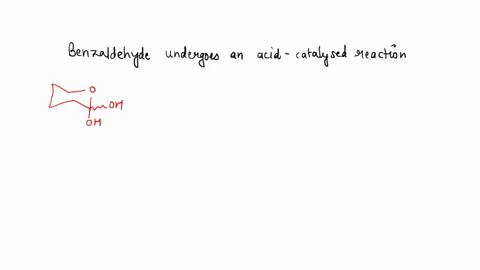 Benzaldehyde undergoes an acid-catalysed reaction
O
OH
OH